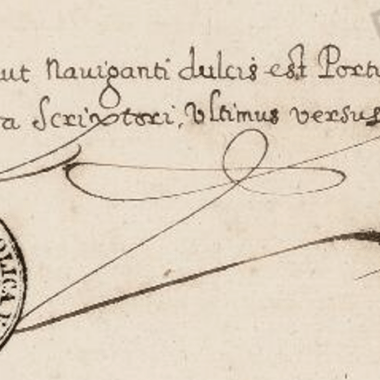 ut Nauiganti dulcis est Portu
a Scriptori, Vltimus versus
OLICA P